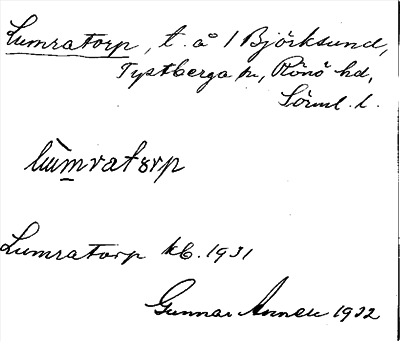 Lumratorp, t. å / Björksund,
Tystberga sn, Rönö hd,
Sörml. l.
lùmratorp
Lumratorp kb. 1931
Gunnar 1932